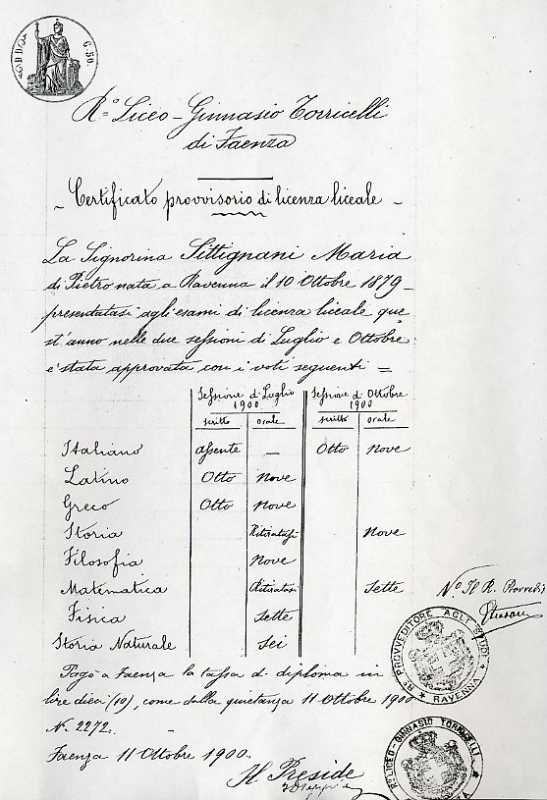 C. 50.
R.º Liceo-Ginnasio Torricelli
di Faenza
Certificato provvisorio di licenza liceale
La Signorina Sittignani Maria
di Pietro nata a Ravenna il 10 Ottobre 1879
presentatasi agli esami di licenza liceale que
st'anno nelle due sessioni di Luglio e Ottobre
è stata approvata con i voti seguenti =
Sessione di Luglio 1900 Sessione di Ottobre 1900
scritto orale scritto orale
Italiano assente — Otto nove
Latino Otto nove
Greco Otto nove
Storia Ritiratasi nove
Filosofia nove
Matematica Ritiratasi Sette
Fisica Sette
Storia Naturale Sei
Pagò a Faenza la tassa di diploma in
lire dieci (10), come dalla quietanza 11 Ottobre 1900
N. 2272.
Faenza 11 Ottobre 1900.
Il Preside
Nº Il R. Provved
Rº PROVVEDITORE AGLI STUDI
RAVENNA
Rº LICEO-GINNASIO TORRICELLI